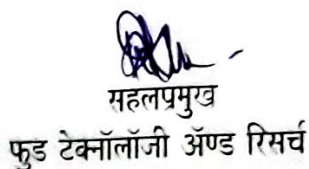 सहलप्रमुख
फुड टेक्नॉलॉजी ॲण्ड रिसर्च